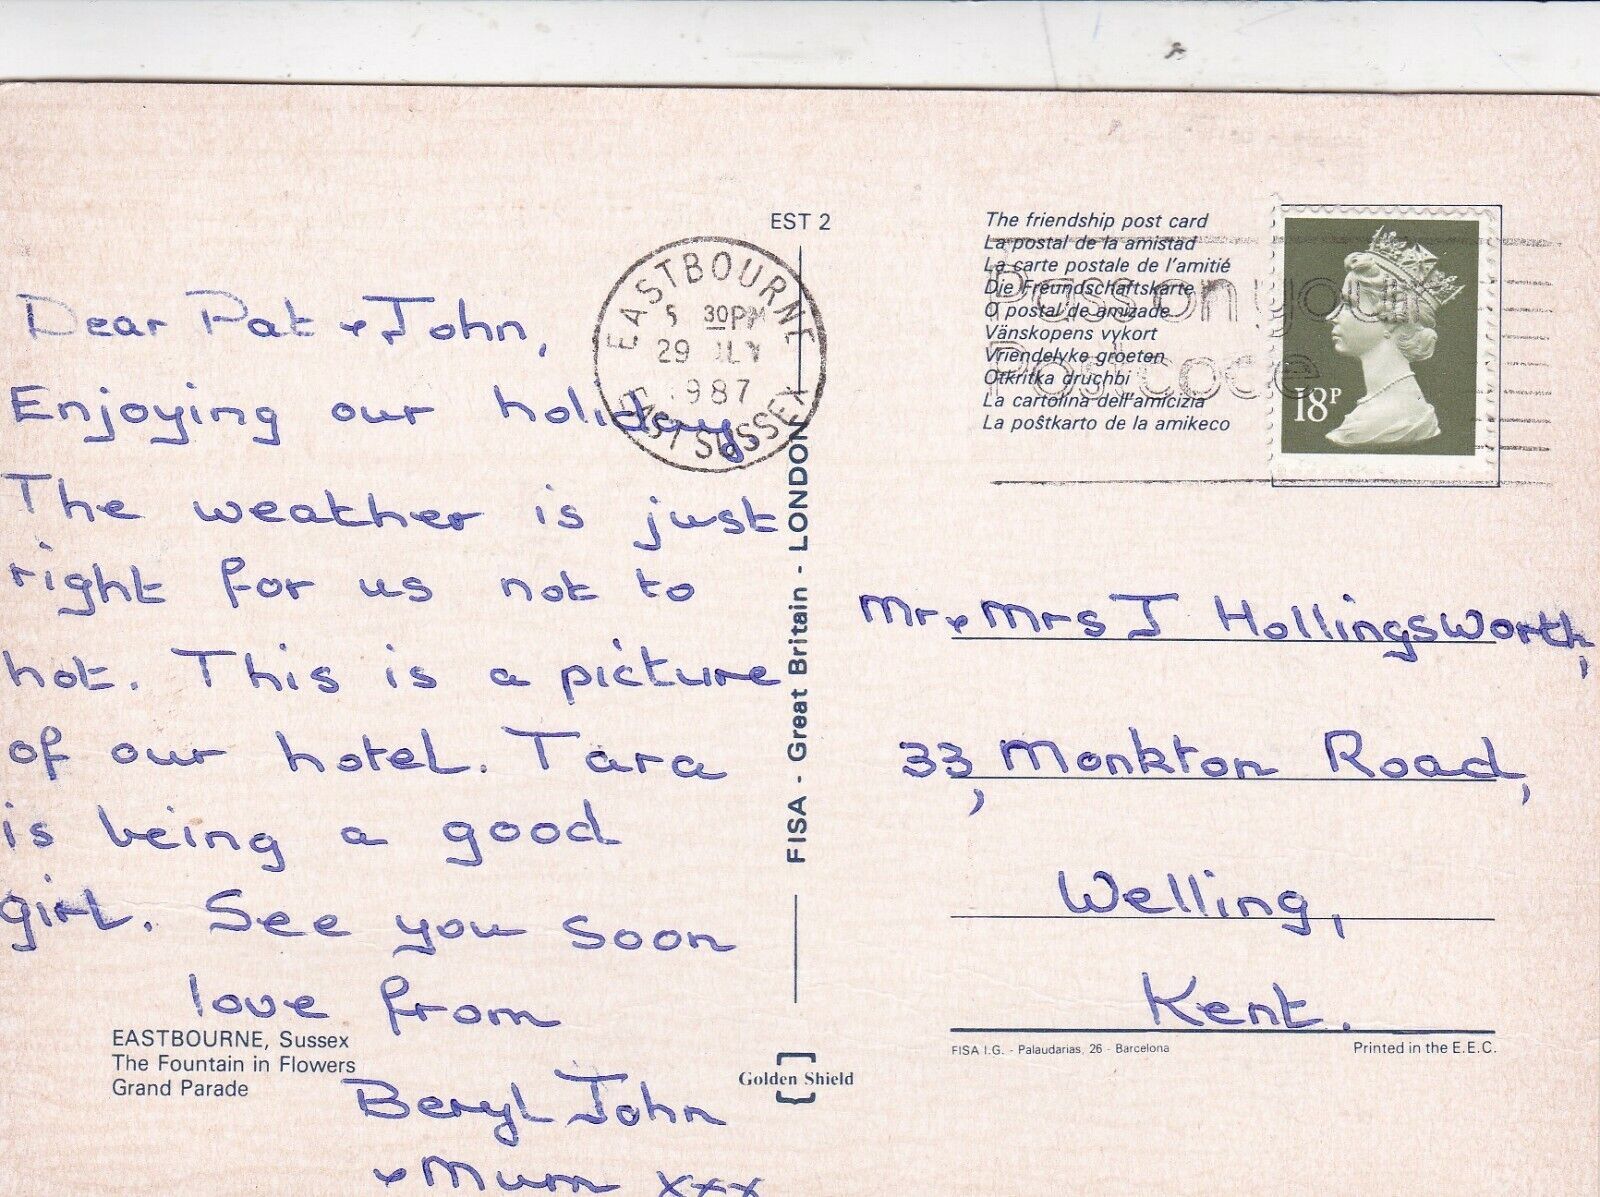 EST 2
EASTBOURNE
5 30PM
29 JLY
1987
EAST SUSSEX
Dear Pat & John,
Enjoying our holiday.
The weather is just
right for us not to
hot. This is a picture
of our hotel. Tara
is being a good
girl. See you soon
love from
Beryl John
& Mum xxx
EASTBOURNE, Sussex
The Fountain in Flowers
Grand Parade
FISA - Great Britain - LONDON
Golden Shield
The friendship post card
La postal de la amistad
La carte postale de l'amitié
Die Freundschaftskarte
O postal de amizade
Vänskopens vykort
Vriendelyke groeten
Otkritka druchbi
La cartolina dell'amicizia
La poŝtkarto de la amikeco
Pass on your
Postcode
18P
Mr & Mrs J Hollingsworth,
33, Monkton Road,
Welling,
Kent.
FISA I.G. - Palaudarias, 26 - Barcelona
Printed in the E.E.C.